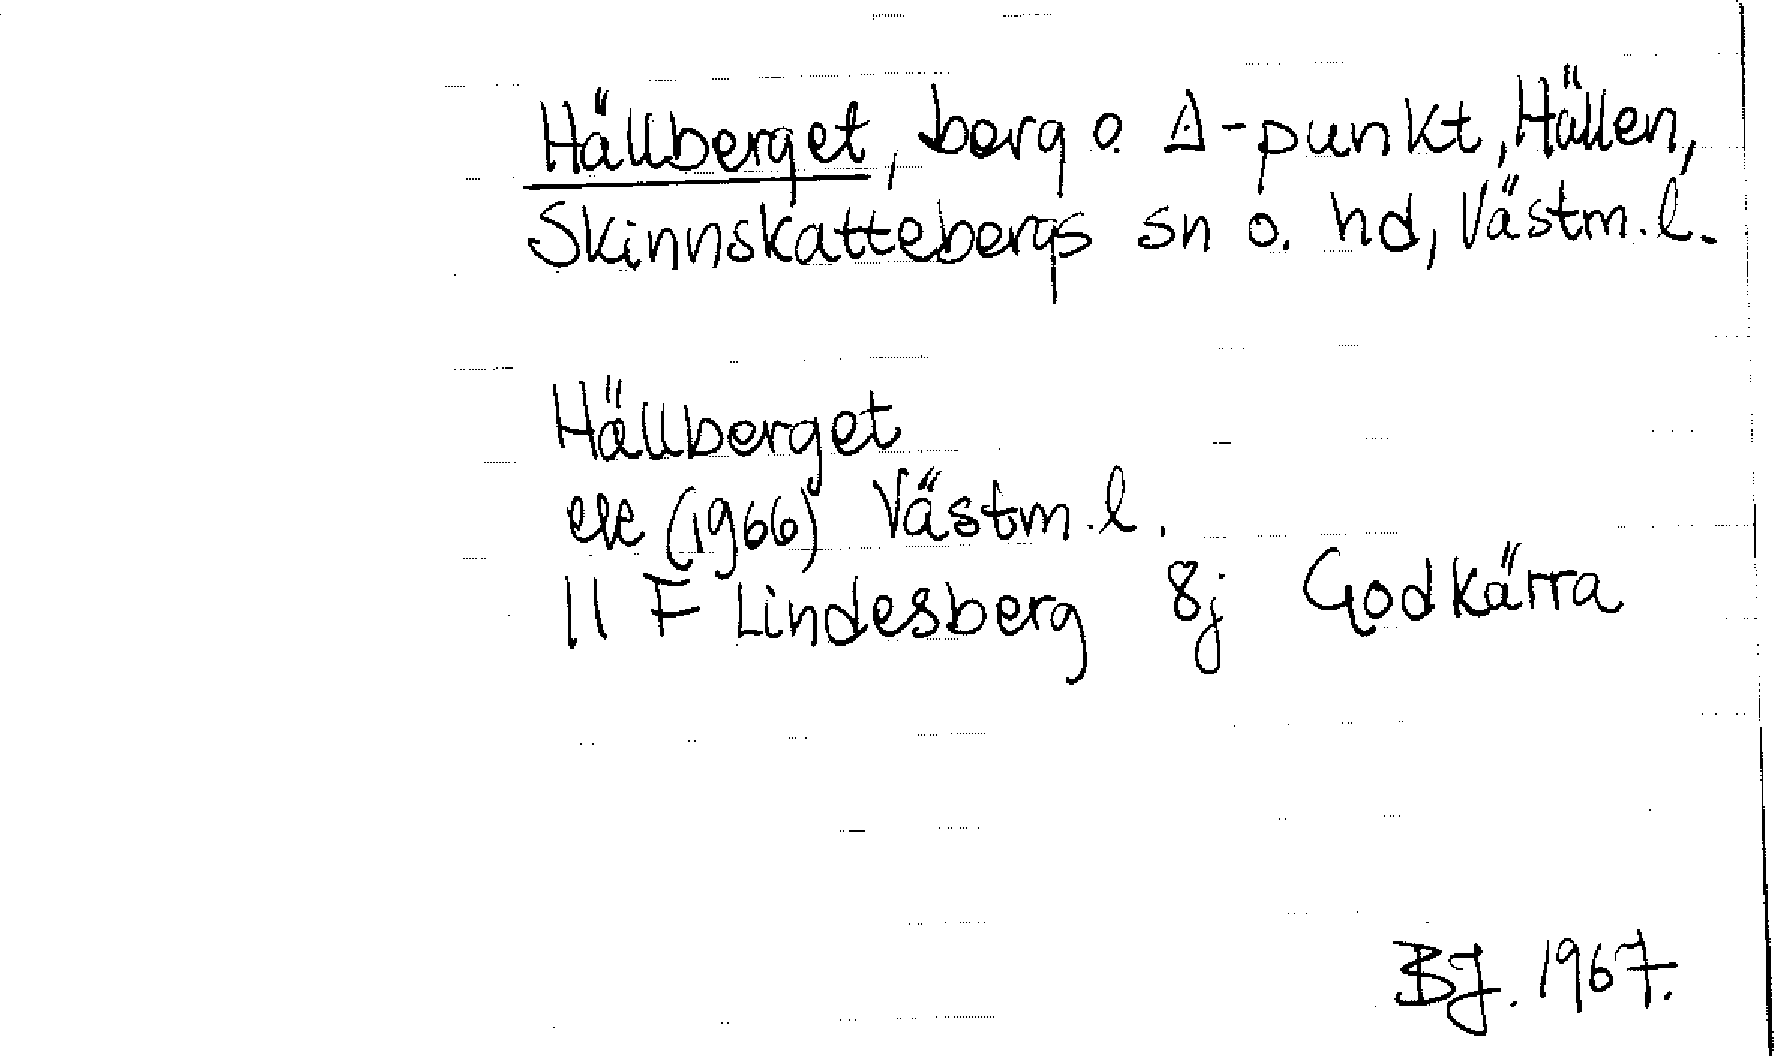 Hällberget, berg o. Δ-punkt, Hällen,
Skinnskattebergs sn o. hd, Västm. l.
Hällberget
ek (1966) Västm. l.
11 F Lindesberg 8j Godkärra
BJ. 1967.